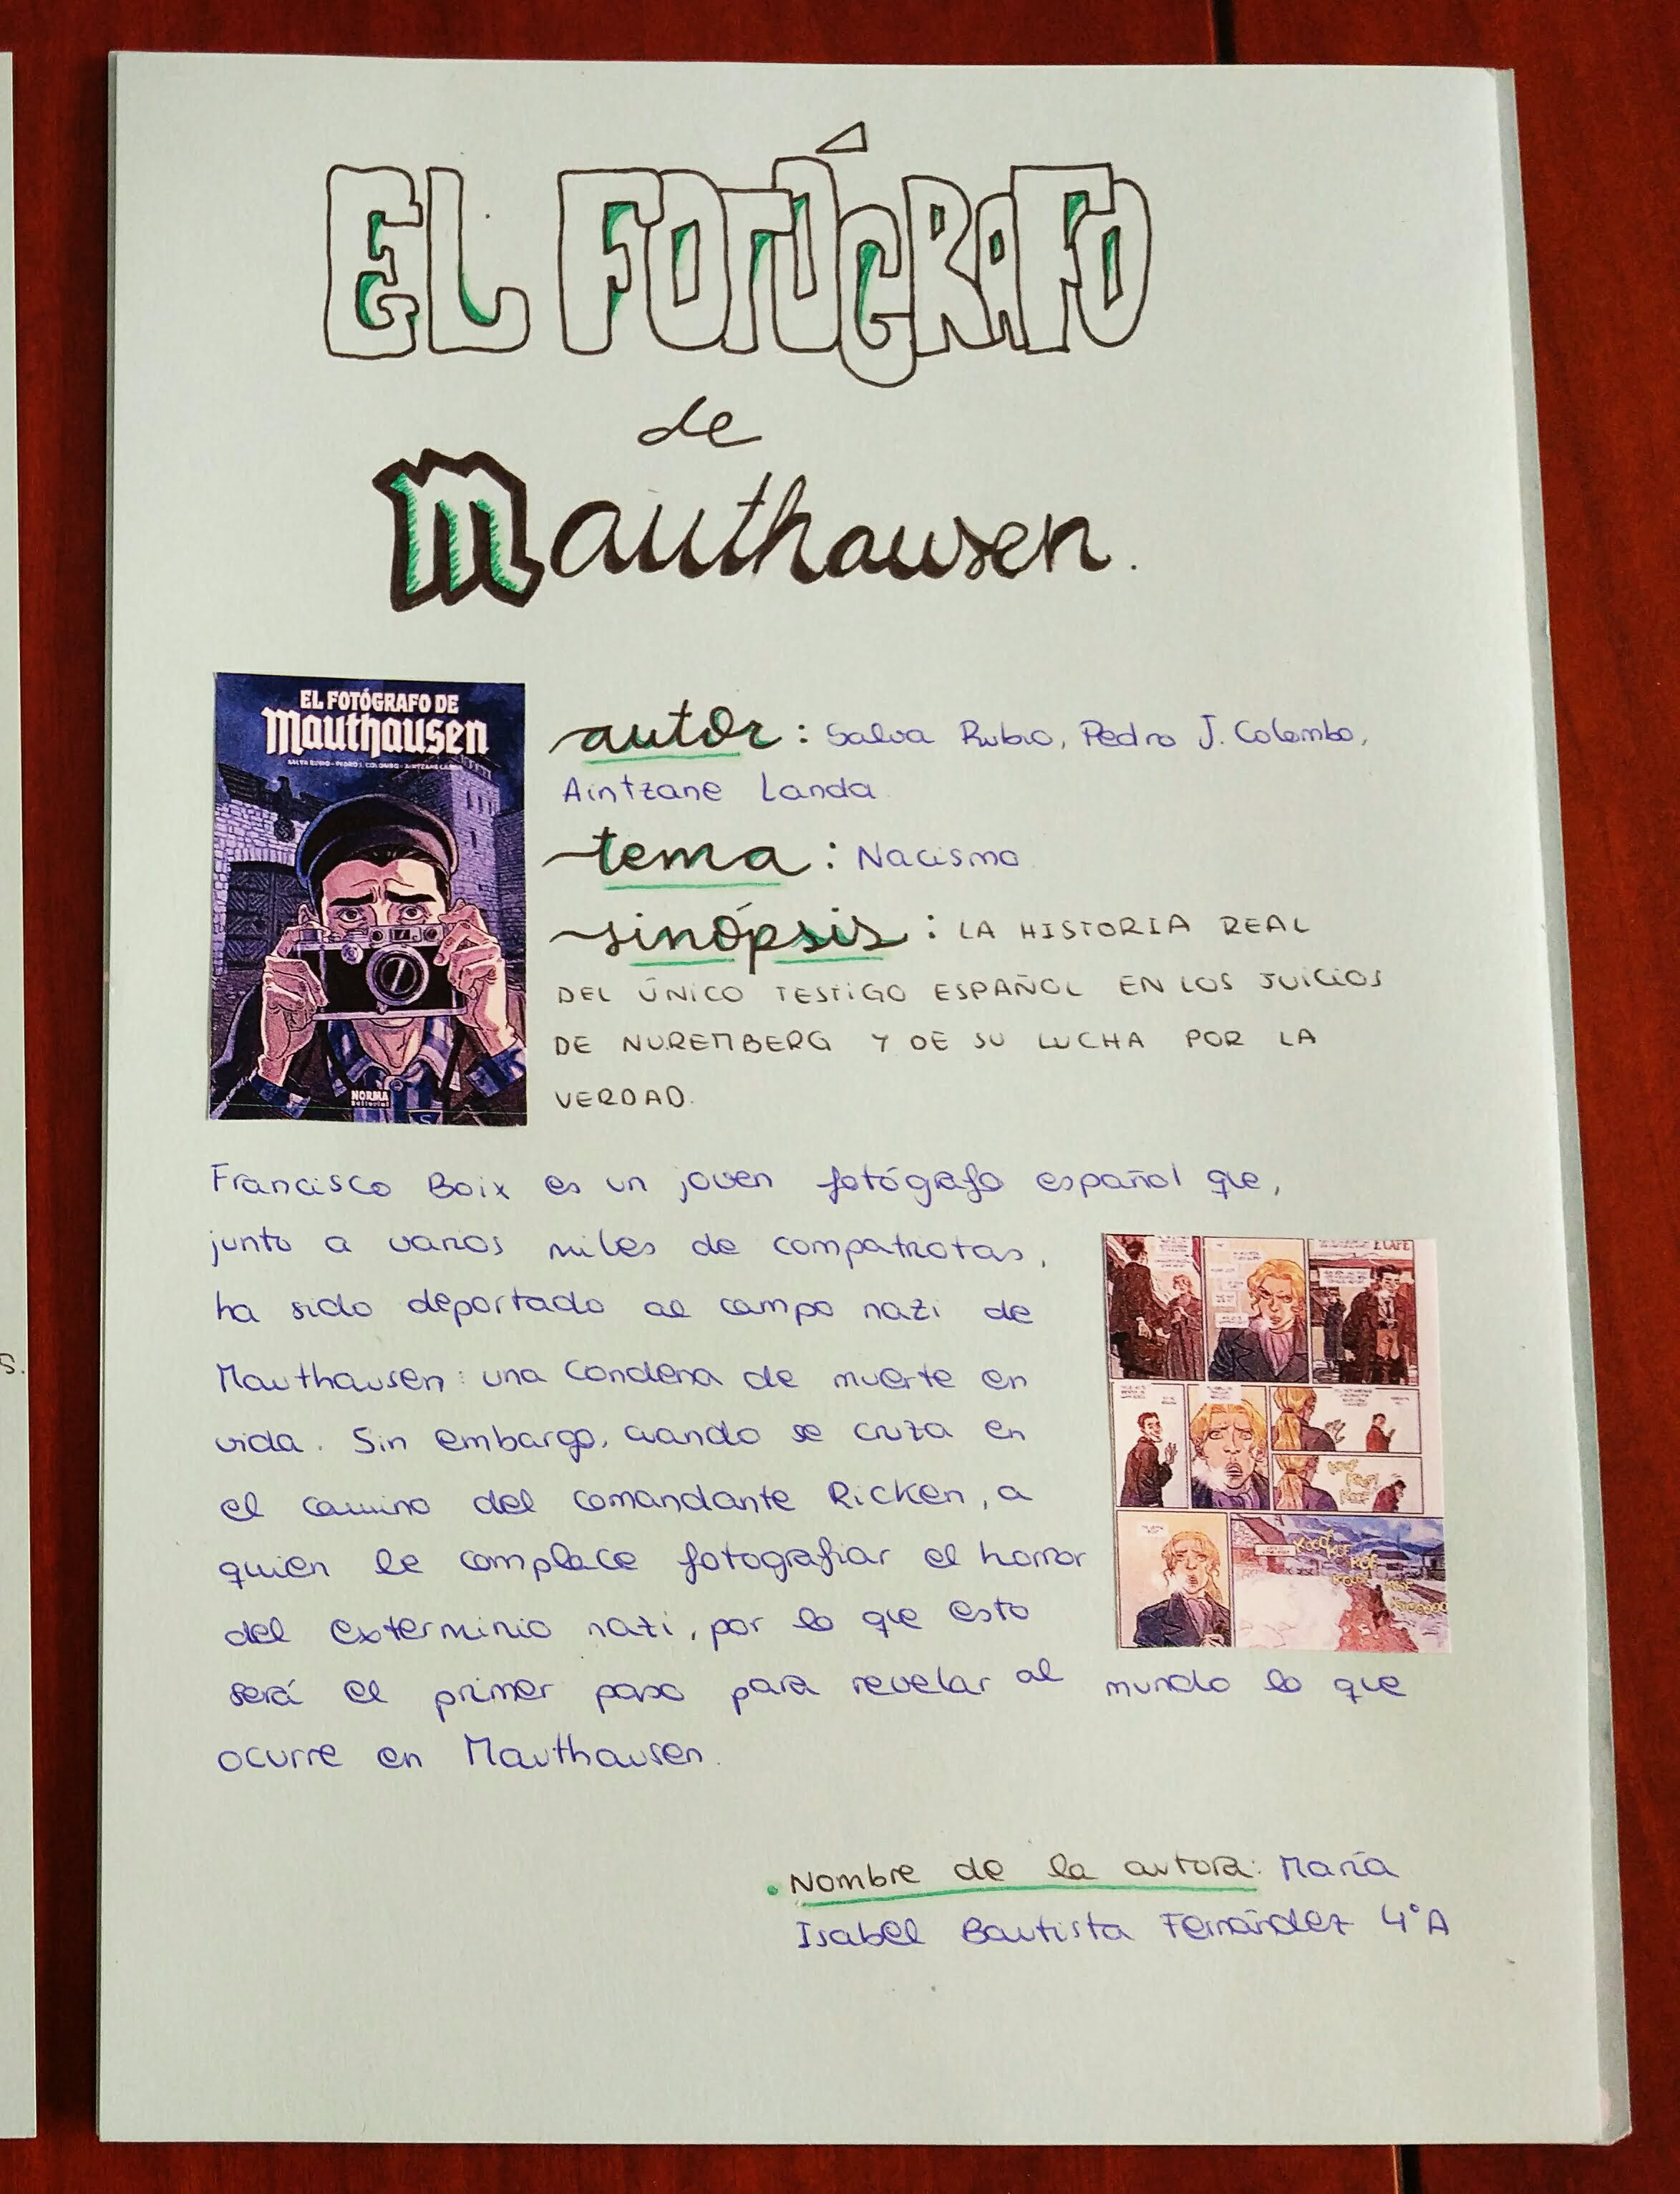 EL FOTÓGRAFO
de
Mauthausen.
EL FOTÓGRAFO DE
Mauthausen
SALVA RUBIO - PEDRO J. COLOMBO - AINTZANE LANDA
NORMA
Editorial
S
autor: Salva Rubio, Pedro J. Colombo,
Aintzane Landa
tema: Nacismo
sinópsis: LA HISTORIA REAL
DEL ÚNICO TESTIGO ESPAÑOL EN LOS JUICIOS
DE NUREMBERG Y DE SU LUCHA POR LA
VERDAD.
Francisco Boix es un joven fotógrafo español que,
junto a varios miles de compatriotas,
ha sido deportado al campo nazi de
Mauthausen: una condena de muerte en
vida. Sin embargo, cuando se cruza en
el camino del comandante Ricken, a
quien le complace fotografiar el horror
del exterminio nazi, por lo que esto
será el primer paso para revelar al mundo lo que
ocurre en Mauthausen.
CAFE
. Nombre de la autora: María
Isabel Bautista Fernández 4°A
s.